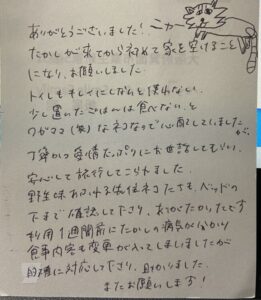 ありがとうございました！
ニャー
たかしが来てから初めて家を空けること
になり、お願いしました
トイレもキレイにしないと使わない
少し置いたごはんは食べない、と
ワガママ(笑)なネコなので心配していました
が、
丁寧かつ愛情たっぷりにお世話してもらい、
安心して旅行してこられました
野生味あふれる先住ネコたちも、ベッドの
下まで確認して下さり、ありがたかったです
利用1週間前にたかしの病気が分かり
食事内容も変更が入ってしまいましたが
的確に対応して下さり、助かりました
またお願いします！